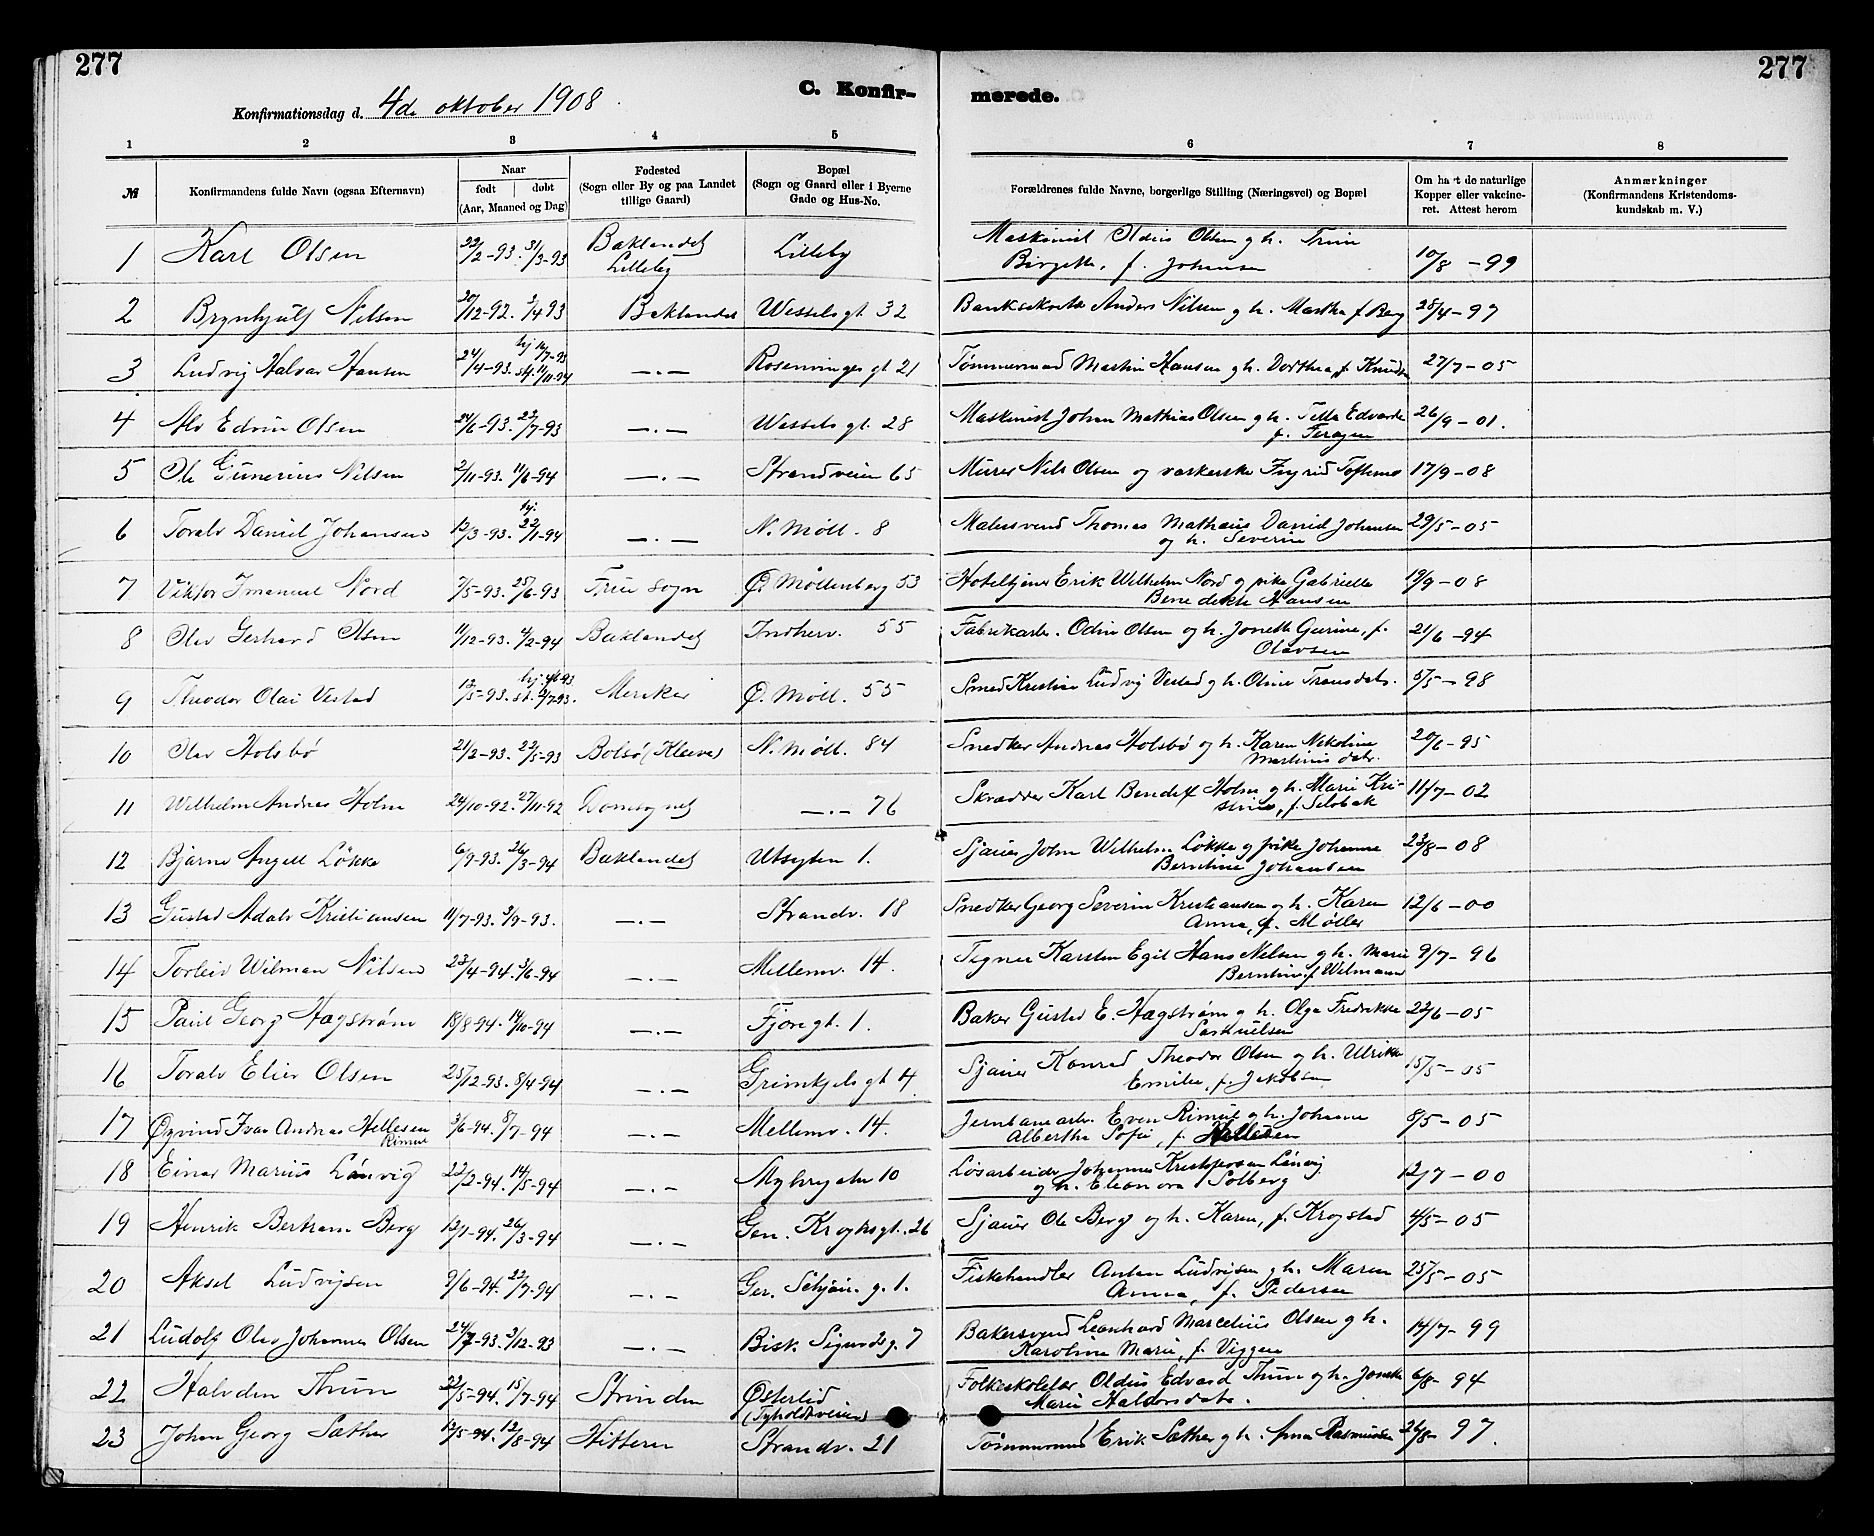 277
277
C. Konfir-
merede.
Konfirmationsdag d. 4de oktober 1908.
1 2 3 4 5 6 7 8
№
Konfirmandens fulde Navn (ogsaa Efternavn)
Naar
født | døbt
(Aar, Maaned og Dag)
Fødested
(Sogn eller By og paa Landet
tillige Gaard)
Bopæl
(Sogn og Gaard eller i Byerne
Gade og Hus-No.
Forældrenes fulde Navne, borgerlige Stilling (Næringsvei) og Bopæl
Om havt de naturlige
Kopper eller vakcine-
ret. Attest herom
Anmærkninger
(Konfirmandens Kristendoms-
kundskab m. V.)
1 Karl Olsen 22/2-93. 31/3-93 Baklandet Lilleby Lilleby Maskinist Oldus Olsen og h. Trine
Birgitte, f. Johansen 10/8 -99
2 Brynhjulf Nilsen 20/12-92. 2/4 93 Baklandet Wesselsgt 32 Banksekretær Anders Nilsen og h. Martha f Berg 28/4-97
3 Ludvig Halvar Hansen 24/4-93. hj 16/7-93 st. 11/11-94 —.— Rosenvinges gt 21 Tømmermand Martin Hansen og h. Dorthea, f. Knudsen 27/7-05
4 Alv Edvin Olsen 24/6-93. 23/7-93 —.— Wessels gt. 28 Maskinist Johan Mathias Olsen og h. Tella Edvarda
f. Terajen 26/9-01.
5 Ole Gunerius Nilsen 2/11-93. 11/6-94 —.— Strandveien 65 Murer Nils Olsen og vaskerske Ingrid Toftemo 17/9-08
6 Toralv Daniel Johansen 12/3-93. hj. 22/1-94 —.— N. Møll. 8 Malersvend Thomas Mathæus David Johansen
og h. Severine 29/5-05
7 Viktor Imanuel Nord 7/5-93. 25/6-93 Frue sogn Ø. Møllenberg 53 Hoteltjener Erik Wilhelm Nord og pike Gabrielle
Benedikte Hansen 19/9-08
8 Olav Gerhard Olsen 11/12-93. 4/2-94 Baklandet Indherv. 55 Fabrikarb. Odin Olsen og h. Jonette Gurine, f.
Olavsen 21/6-94
9 Theodor Olai Vestad 12/5-93. hj. 4/6 93 st. 2/7-93. Meraker Ø. Møll. 55 Smed Kristian Ludvig Vestad og h. Oline Transdatr. 5/5-98
10 Olav Holsbø 21/2-93. 22/5-93 Bolsø (Kleive) N. Møll. 84 Snedker Andreas Holsbø og h. Karen Nikoline
Martinusdatr. 20/6-95
11 Wilhelm Andreas Holm 24/10-92. 27/11-92 Domsognet —.— 76 Skrædder Karl Bendix Holm og h. Marie Kri-
stine, f. Selsbak 11/7-02
12 Bjarne Angell Løkke 6/9-93. 26/3-94 Baklandet Utsyten 1. Sjauer John Wilhelm Løkke og pike Johanne
Berntine Johansen 23/8-08
13 Gustav Adolv Kristiansen 11/7-93. 3/9-93. —.— Strandv. 18 Snedker Georg Severin Kristiansen og h. Karen
Anna, f. Møller 12/6-00
14 Torleiv Wilman Nilsen 23/4-94. 3/6-94 —.— Mellemv. 14. Tegner Karsten Egil Hans Nilsen og h. Marie
Berntine f. Wilmann 9/7-96
15 Paul Georg Hagstrøm 18/8-94. 14/10-94 —.— Fjoregt. 1. Baker Gustav E. Hagstrøm og h. Olga Fredrikke
22/6-05
16 Toralv Elier Olsen 25/12-93. 8/4-94 —.— Grimkjels gt 4. Sjauer Konrad Theodor Olsen og h. Ulrikke
Emilie, f. Jakobsen 15/5-05
17 Øyvind Ivar Andreas Hellesen Rimul 3/6-94. 8/7-94 —.— Mellemv. 14. Jernbanearb. Even Rimul og h. Johanne
Albertha Sofie, f. Hellesen 8/5-05
18 Einar Marius Lånvig 22/2-94. 14/5-94 —.— Myhregatn 10 Løsarbeider Johannes Kristofersen Lånvig
og h. Eleonora Solberg 12/7-00
19 Henrik Bertram Berg 12/1-94. 26/3-94 —.— Gen. Kroghsgt. 26 Sjauer Ole Berg og h. Karen, f. Krogstad 4/5-05
20 Aksel Ludvigsen 9/6-94. 22/7-94 —.— Ger. Schjøn. g. 1. Fiskehandler Anton Ludvigsen og h. Maren
Anna, f. Pedersen 25/5-05
21 Ludolf Olav Johannes Olsen 24/7-93. 3/12-93 —.— Bisk Sigurds g. 7 Bakersvend Leonhard Marcelius Olsen og h.
Karoline Marie, f. Viggen 14/7-99
22 Halvdan Thun 22/5-94. 15/7-94 Strinden Østerlid
(Tyholtveien) Folkeskolelær Oldus Edvard Thun og h. Jonette
Marie Haldorsdatr. 6/8-94
23 Johan Georg Sæther 12/5-94. 12/8-94 Hitteren Strandv. 21 Tømmermand Erik Sæther og h. Anna Rasmusdatr 26/8-97.